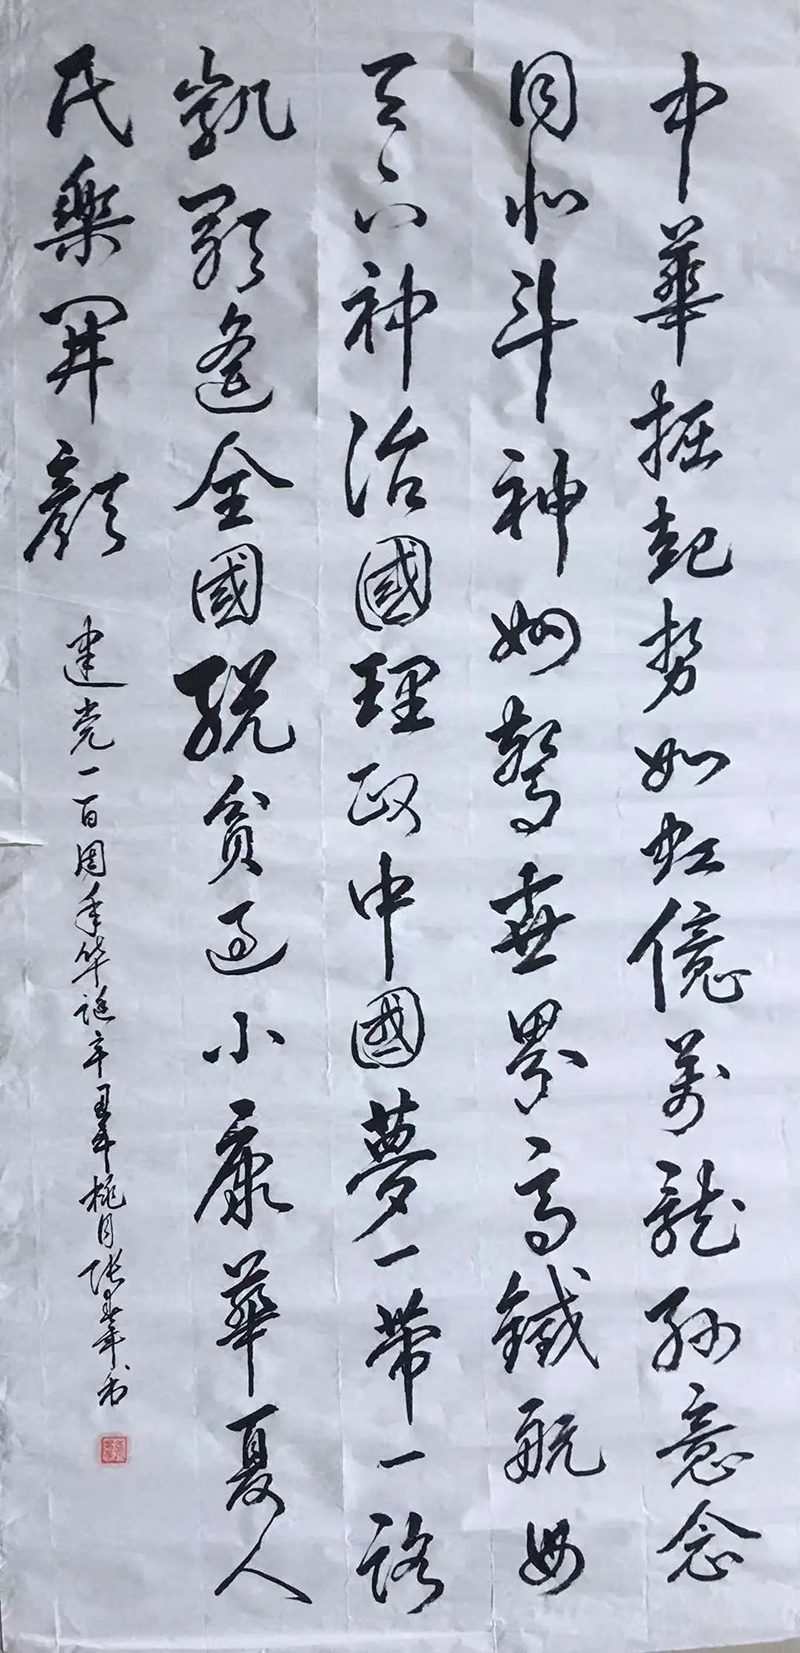 中華掘起勢如虹億萬龍孫意念
同北斗神州驚世界高鐵航母
天下神治國理政中國夢一帶一路
凱歌遙全國脱貧過小康華夏人
民樂開顏
建党一百周年华诞辛丑年桃月张春华书